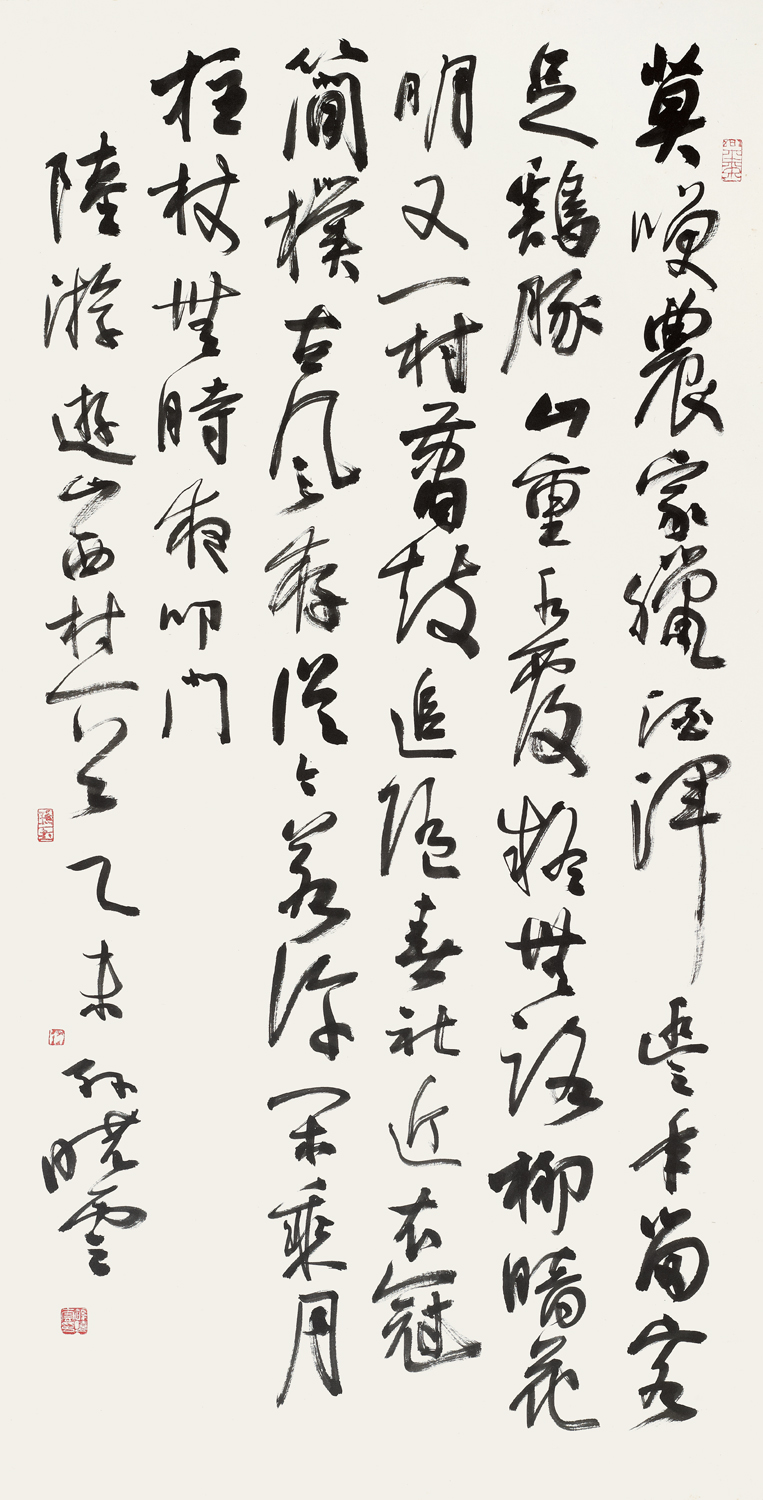 莫咲農家臘酒渾豐年留客
足鷄豚山重水覆疑無路柳暗花
明又一村簫鼓追隨春社近衣冠
簡樸古風存從今若許閑乘月
拄杖無時夜叩門
陸游遊山西村一首乙未孫曉雲